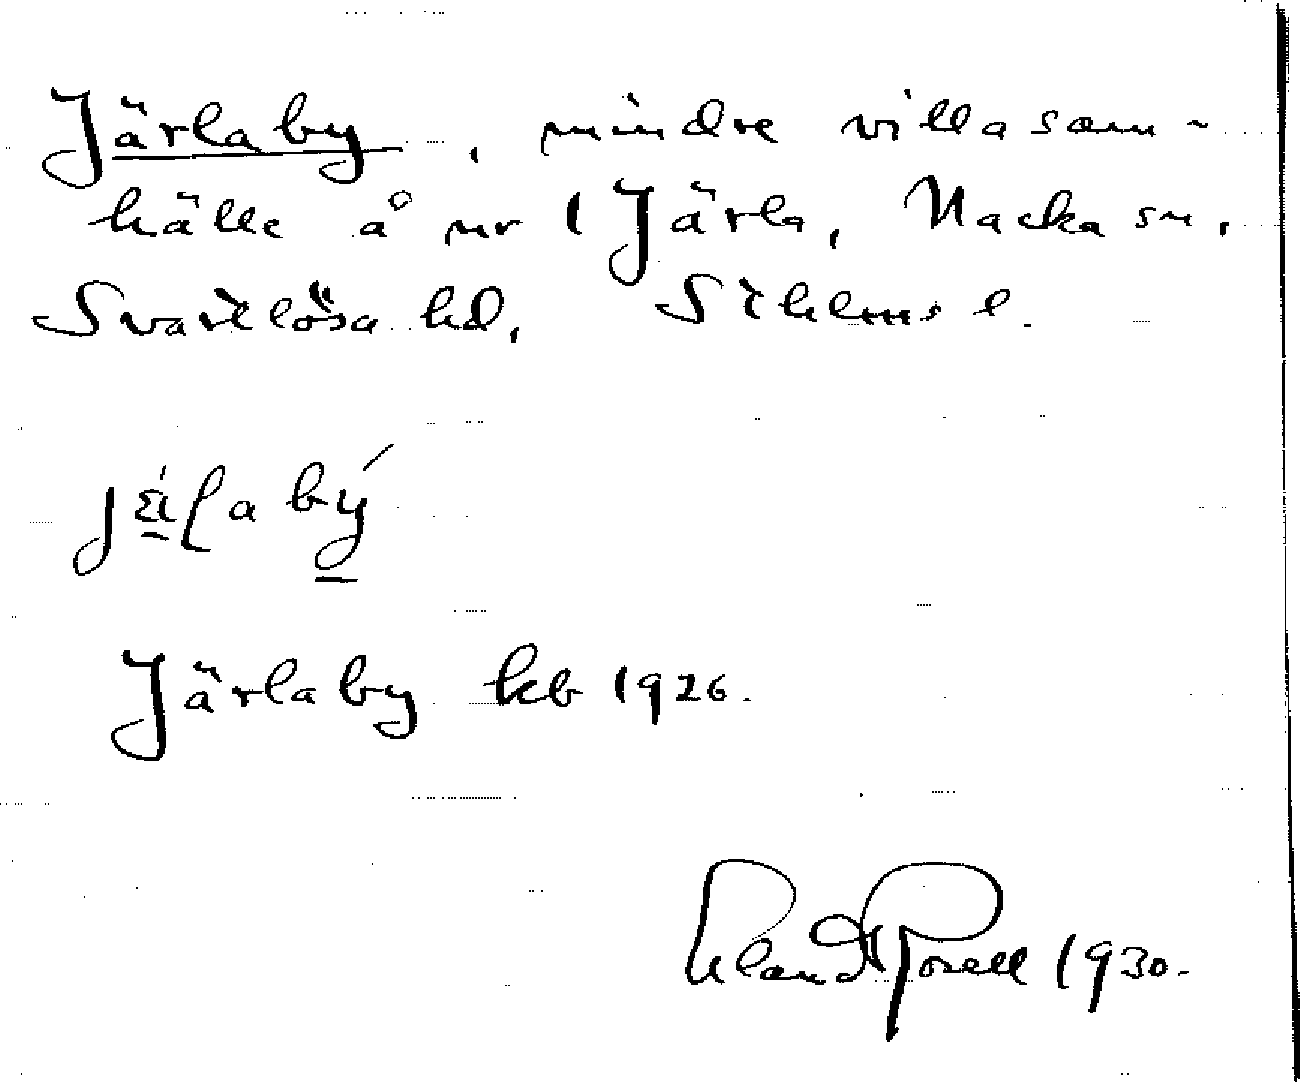 Järlaby, mindre villasam-
hälle å nr 1 Järla, Nacka sn,
Svartlösa hd, Sthlms l.
Järlaby kb 1926.
1930.